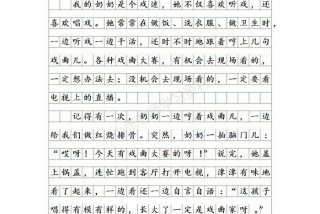 我的奶奶是个戏迷，她不仅喜欢听戏，还
喜欢唱戏。她常常在做饭、洗衣服、做卫生时，
一边听戏一边干活，还时不时地跟着哼上几句
戏曲儿。各种戏曲大赛，有机会去现场看的，
一定想办法去；没机会去现场看的，一定要看
电视上的直播。
记得有一次，奶奶一边哼着戏曲儿，一边
给我们做红烧排骨。突然，奶奶一拍脑门儿：
“哎呀！今天有戏曲大赛的呀！”说完，她盖
上锅盖，连忙跑到客厅打开电视，津津有味地
看了起来，一边看还一边自言自语：“这孩子
唱得有模有样的，长大了一定是戏曲家呀。”